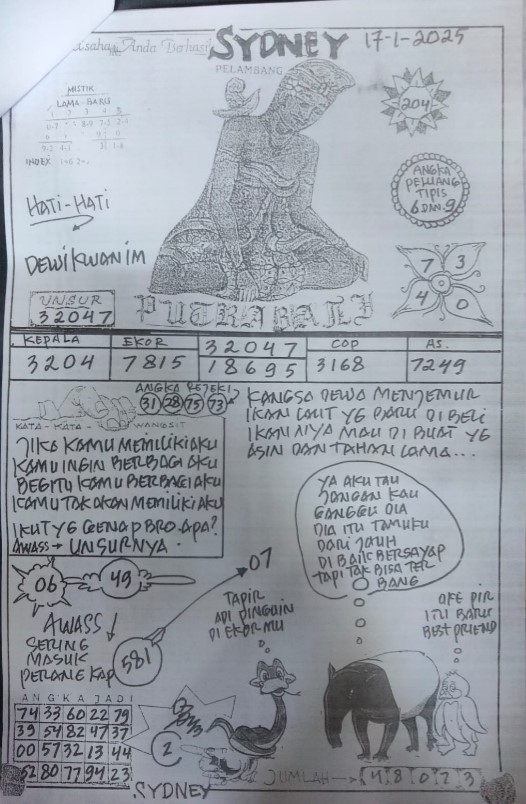 Usaha Anda Berhasil
SYDNEY
17-1-2025
PELAMBANG
MISTIK
LAMA-BARU
INDEX:
204
ANGKA
PELUANG
TIPIS
6 DAN 9
HATI-HATI
DEWI KWANIM
7 3
4 0
UNSUR
32047
PUTRA BALI
KEPALA EKOR 32047 COP AS.
3204 7815 18695 3168 7249
ANGKA REJEKI
31 28 75 73
KATA-KATA-WANGSIT
JIKA KAMU MEMILIKI AKU
KAMU INGIN BERBAGI AKU
BEGITU KAMU BERBAGI AKU
KAMU TAK AKAN MEMILIKI AKU
IKUT YG GENAP BRO APA?
AWASS → UNSURNYA.
KANGSA DEWA MENJEMUR
IKAN LAUT YG BARU DI BELI
IKAN NIYA MAU DI BUAT YG
ASIN DAN TAHAN LAMA...
YA AKU TAU
JANGAN KAU
GANGGU DIA
DIA ITU TAMUKU
DARI JAUH
DI BAIK BERSAYAP
TAPI TAK BISA TER
BANG
06
49
07
AWASS
SERING
MASUK
PERANG KAP
581
TAPIR
ADI PINGUIN
DI EKOR MU
OKE PIR
ITU BARU
BEST FRIEND
ANGKA JADI
74 33 60 22 79
39 54 82 47 37
00 57 32 13 44
52 80 77 94 23
2
SYDNEY
JUMLAH → 4 8 0 7 3